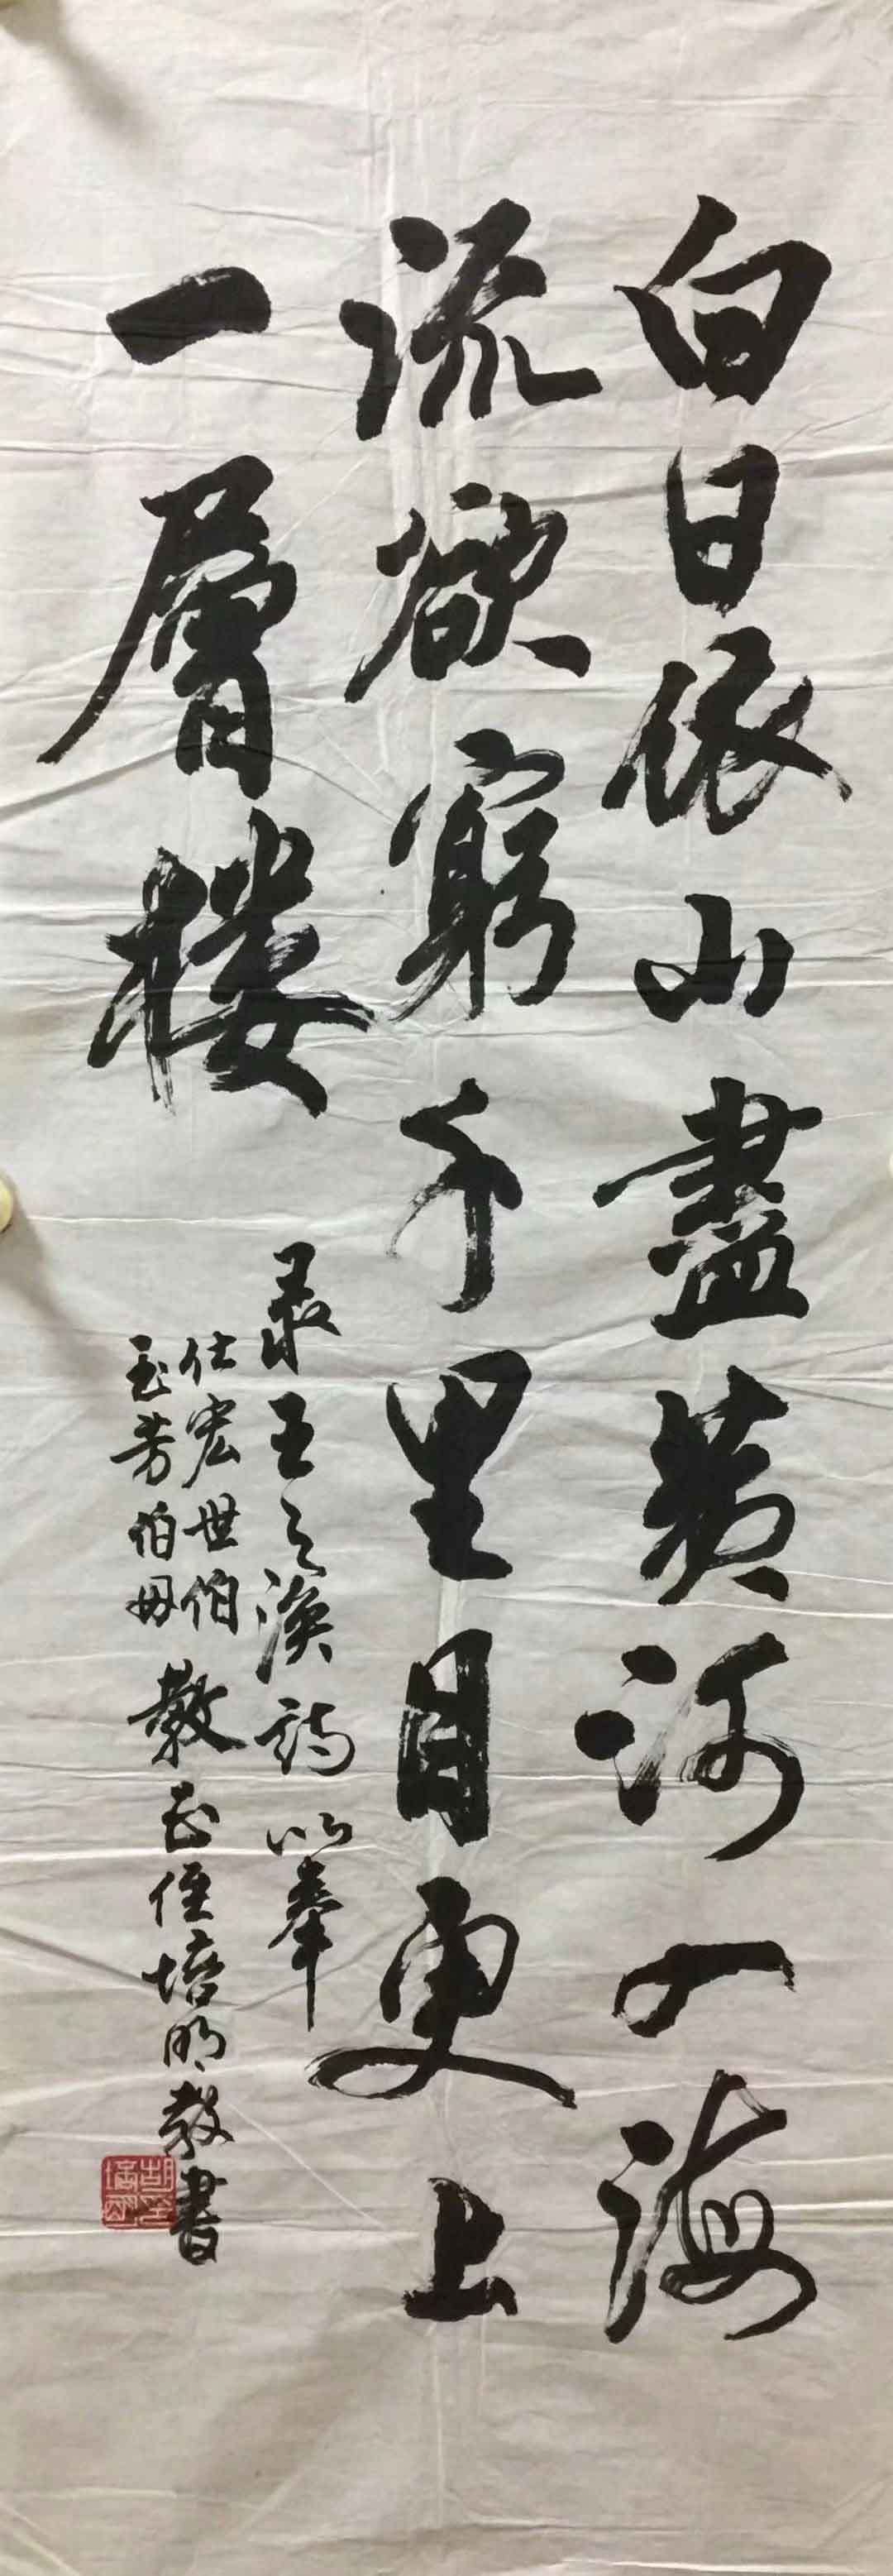 白日依山盡黃河入海
流欲窮千里目更上
一層楼
录王之渙詩以奉
仕宏世伯
玉芳伯母
教正侄培明敬書